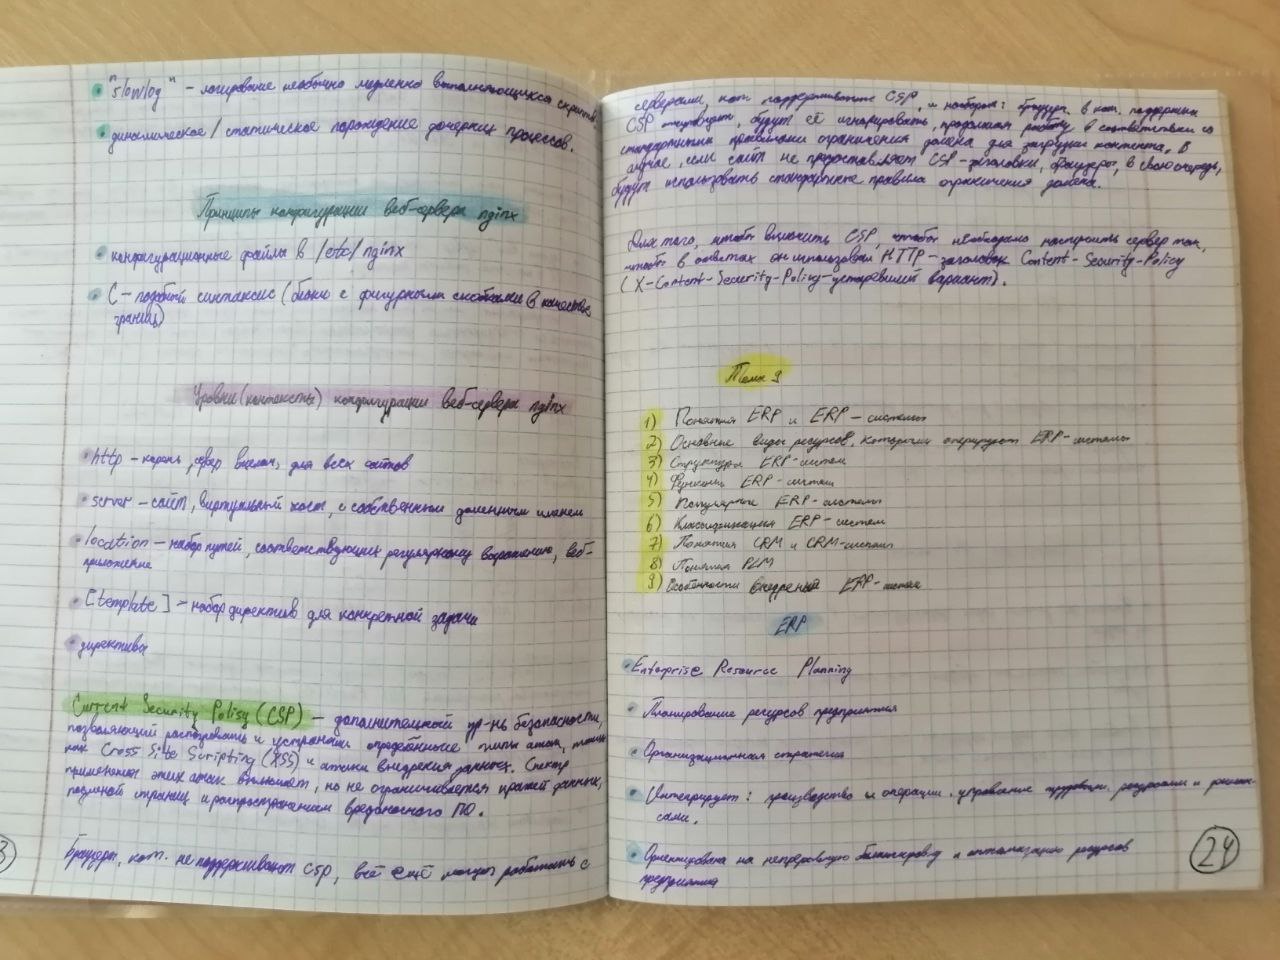 • "slowlog" – логирование необычно медленно выполняющихся скриптов.
• динамическое / статическое порождение дочерних процессов.
Принципы конфигурации веб-сервера nginx
• конфигурационные файлы в /etc/nginx
• С – подобный синтаксис (блоки с фигурными скобками в качестве
границ)
Уровни (контексты) конфигурации веб-сервера nginx
• http – корень, для всех сайтов
• server – сайт, виртуальный хост, с собственным доменным именем
• location – набор путей, соответствующих регулярному выражению, веб-
приложение
• [template] – набор директив для конкретной задачи
• директива
Current Security Polisy (CSP) – дополнительный ур-нь безопасности,
позволяющий распознавать и устранять определённые типы атак, таких
как Cross Site Scripting (XSS) и атаки внедрения данных. Спектр
применения этих атак включает, но не ограничивается кражей данных,
подменой страниц и распространением вредоносного ПО.
Браузеры, кот. не поддерживают CSP, всё ещё могут работать с
3
серверами, кот. поддерживают CSP, и наоборот: браузеры, в кот. поддержка
CSP отсутствует, будут её игнорировать, продолжая работу в соответствии со
стандартными правилами ограничения домена для загрузки контента. В
случае, если сайт не предоставляет CSP-заголовки, браузеры, в свою очередь,
будут использовать стандартные правила ограничения домена.
Для того, чтобы включить CSP, необходимо настроить сервер так,
чтобы в ответах он использовал HTTP-заголовок Content-Security-Policy
(X-Content-Security-Policy-устаревший вариант).
Тема 9
1) Понятия ERP и ERP – системы
2) Основные виды ресурсов, которыми оперируют ERP-системы
3) Структура ERP-систем
4) Функции ERP-систем
5) Популярные ERP-системы
6) Классификация ERP-систем
7) Понятия CRM и CRM-систем
8) Понятия
9) Особенности внедрения ERP-систем
ERP
• Enterprise Resource Planning
• Планирование ресурсов предприятия
• Организационная стратегия
• Интегрирует: производство и операции, управление трудовыми ресурсами и финан-
сами.
• Ориентирована на непрерывную балансировку и оптимизацию ресурсов
предприятия
24